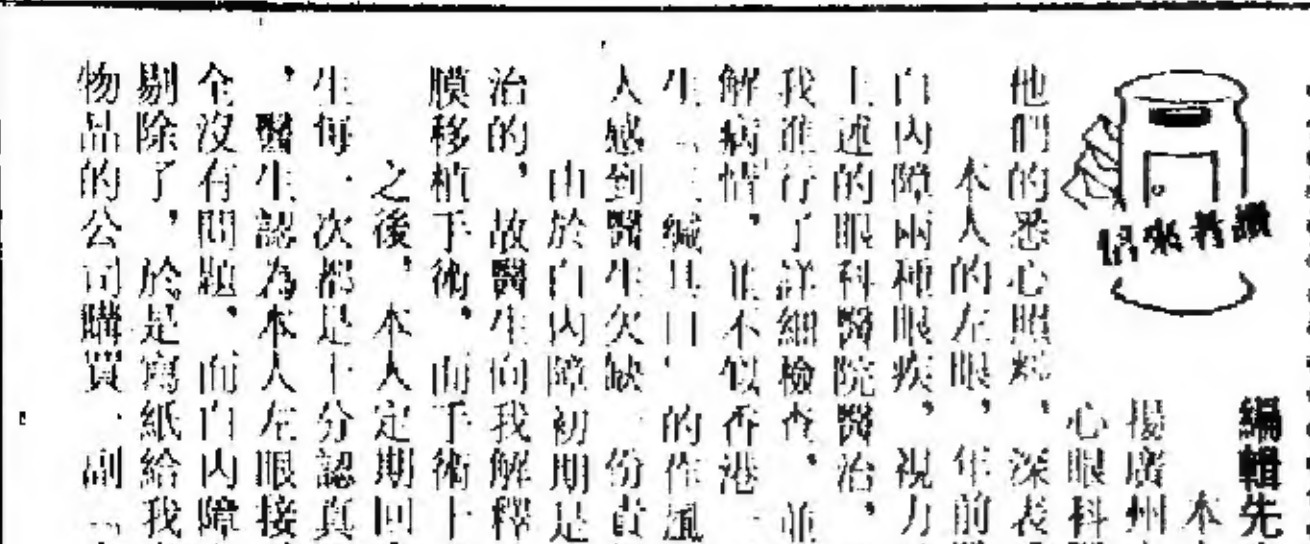 讀者來信
編輯先
本
揚廣州
心眼科
他們的悉心照料，深表
本人的左眼，年前
白內障兩種眼疾，視力
上述的眼科醫院醫治，
我進行了詳細檢查，並
解病情，並不似香港一
生「三緘其口」的作風
人感到醫生欠缺一份責
由於白內障初期是
治的，故醫生向我解釋
膜移植手術，而手術十
之後，本人定期回
生每一次都是十分認真
，醫生認為本人左眼接
全沒有問題，而白內障
剔除了，於是寫紙給我
物品的公司購買一副「